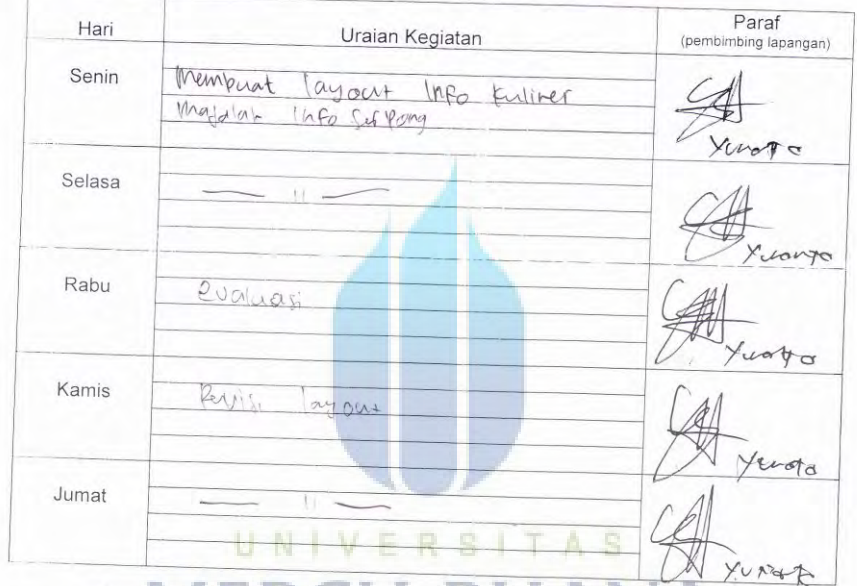 Hari Uraian Kegiatan Paraf
(pembimbing lapangan)
Senin Membuat layout Info Kuliner
Majalah Info Serpong
Yunanto
Selasa — 11 —
Yunanto
Rabu evaluasi
Yunanto
Kamis Revisi layout
Yunanto
Jumat — 11 —
Yunanto
UNIVERSITAS